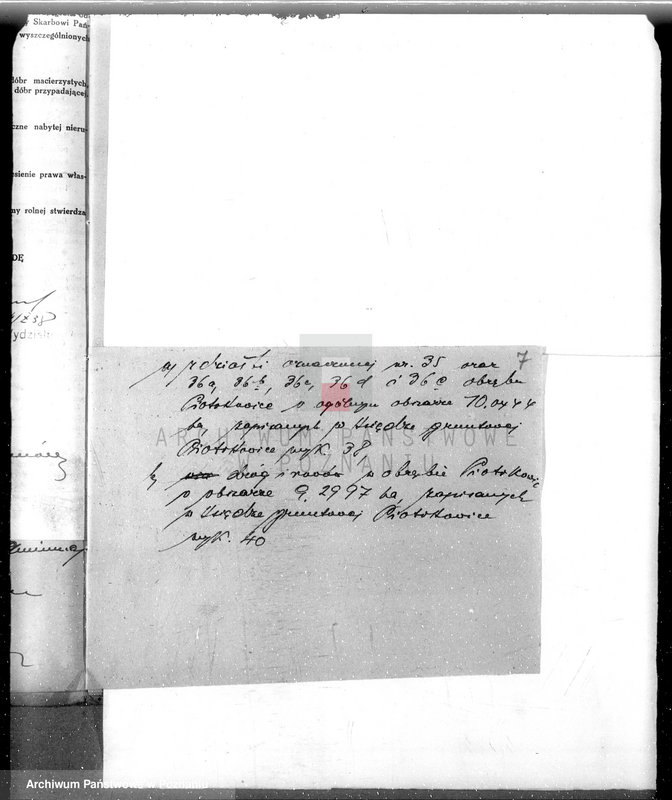 Skarbowi Pań-
wyszczególnionych
dóbr macierzystych,
dóbr przypadającej,
czne nabytej nieru-
sienie prawa włas-
ny rolnej stwierdza
DĘ
7
a) działki oznaczonej nr. 35 oraz
36a, 36b, 36c, 36d i 36e obrębu
Piotrkowice o ogólnym obszarze 10.0444
ha, zapisanych w księdze gruntowej
Piotrkowice wyk. 38
b) dróg i rowów w obrębie Piotrkowic
o obszarze 9.2997 ha, zapisanych
w księdze gruntowej Piotrkowice
wyk. 40
ARCHIWUM PAŃSTWOWE
W POZNANIU
Archiwum Państwowe w Poznaniu